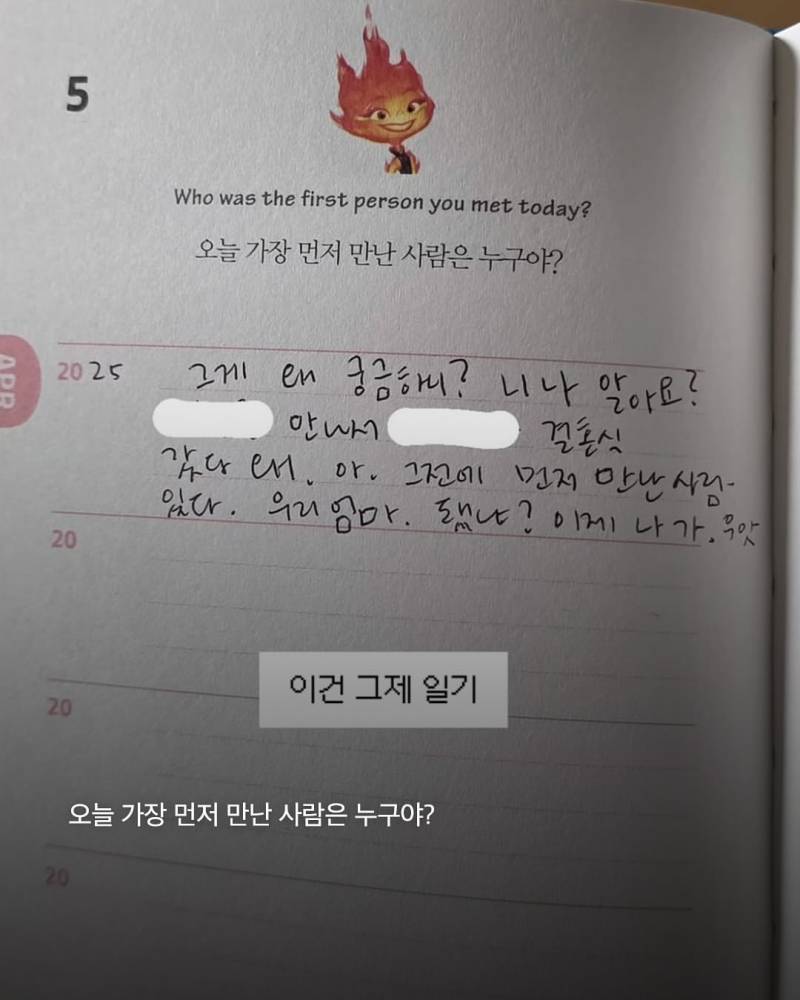 5
Who was the first person you met today?
오늘 가장 먼저 만난 사람은 누구야?
APR
2025 그게 왜 궁금하니? 니 나 알아요?
만나서 결혼식
갔다 왜. 아. 그전에 먼저 만난 사람
있다. 우리 엄마. 됐냐? 이제 나가.
20
이건 그제 일기
20
오늘 가장 먼저 만난 사람은 누구야?
20